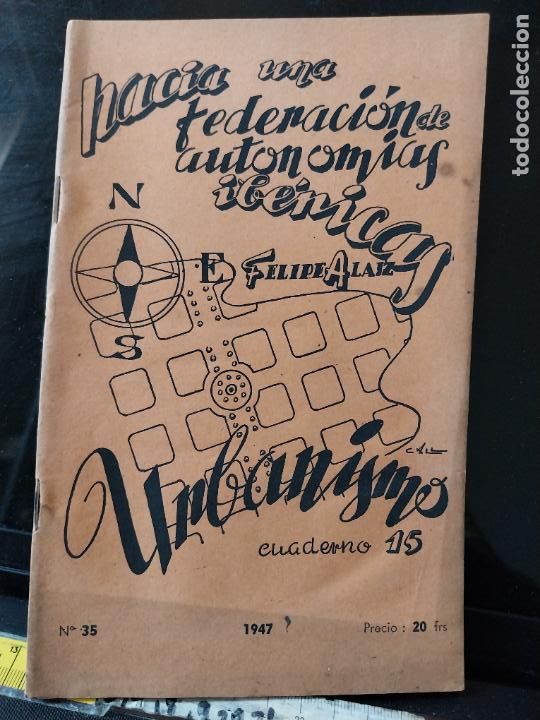 hacia una
federación de
autonomías
ibéricas
N
E
FELIPE ALAIZ
S
Urbanismo
cuaderno 15
Nº 35
1947
Precio : 20 frs
todocoleccion